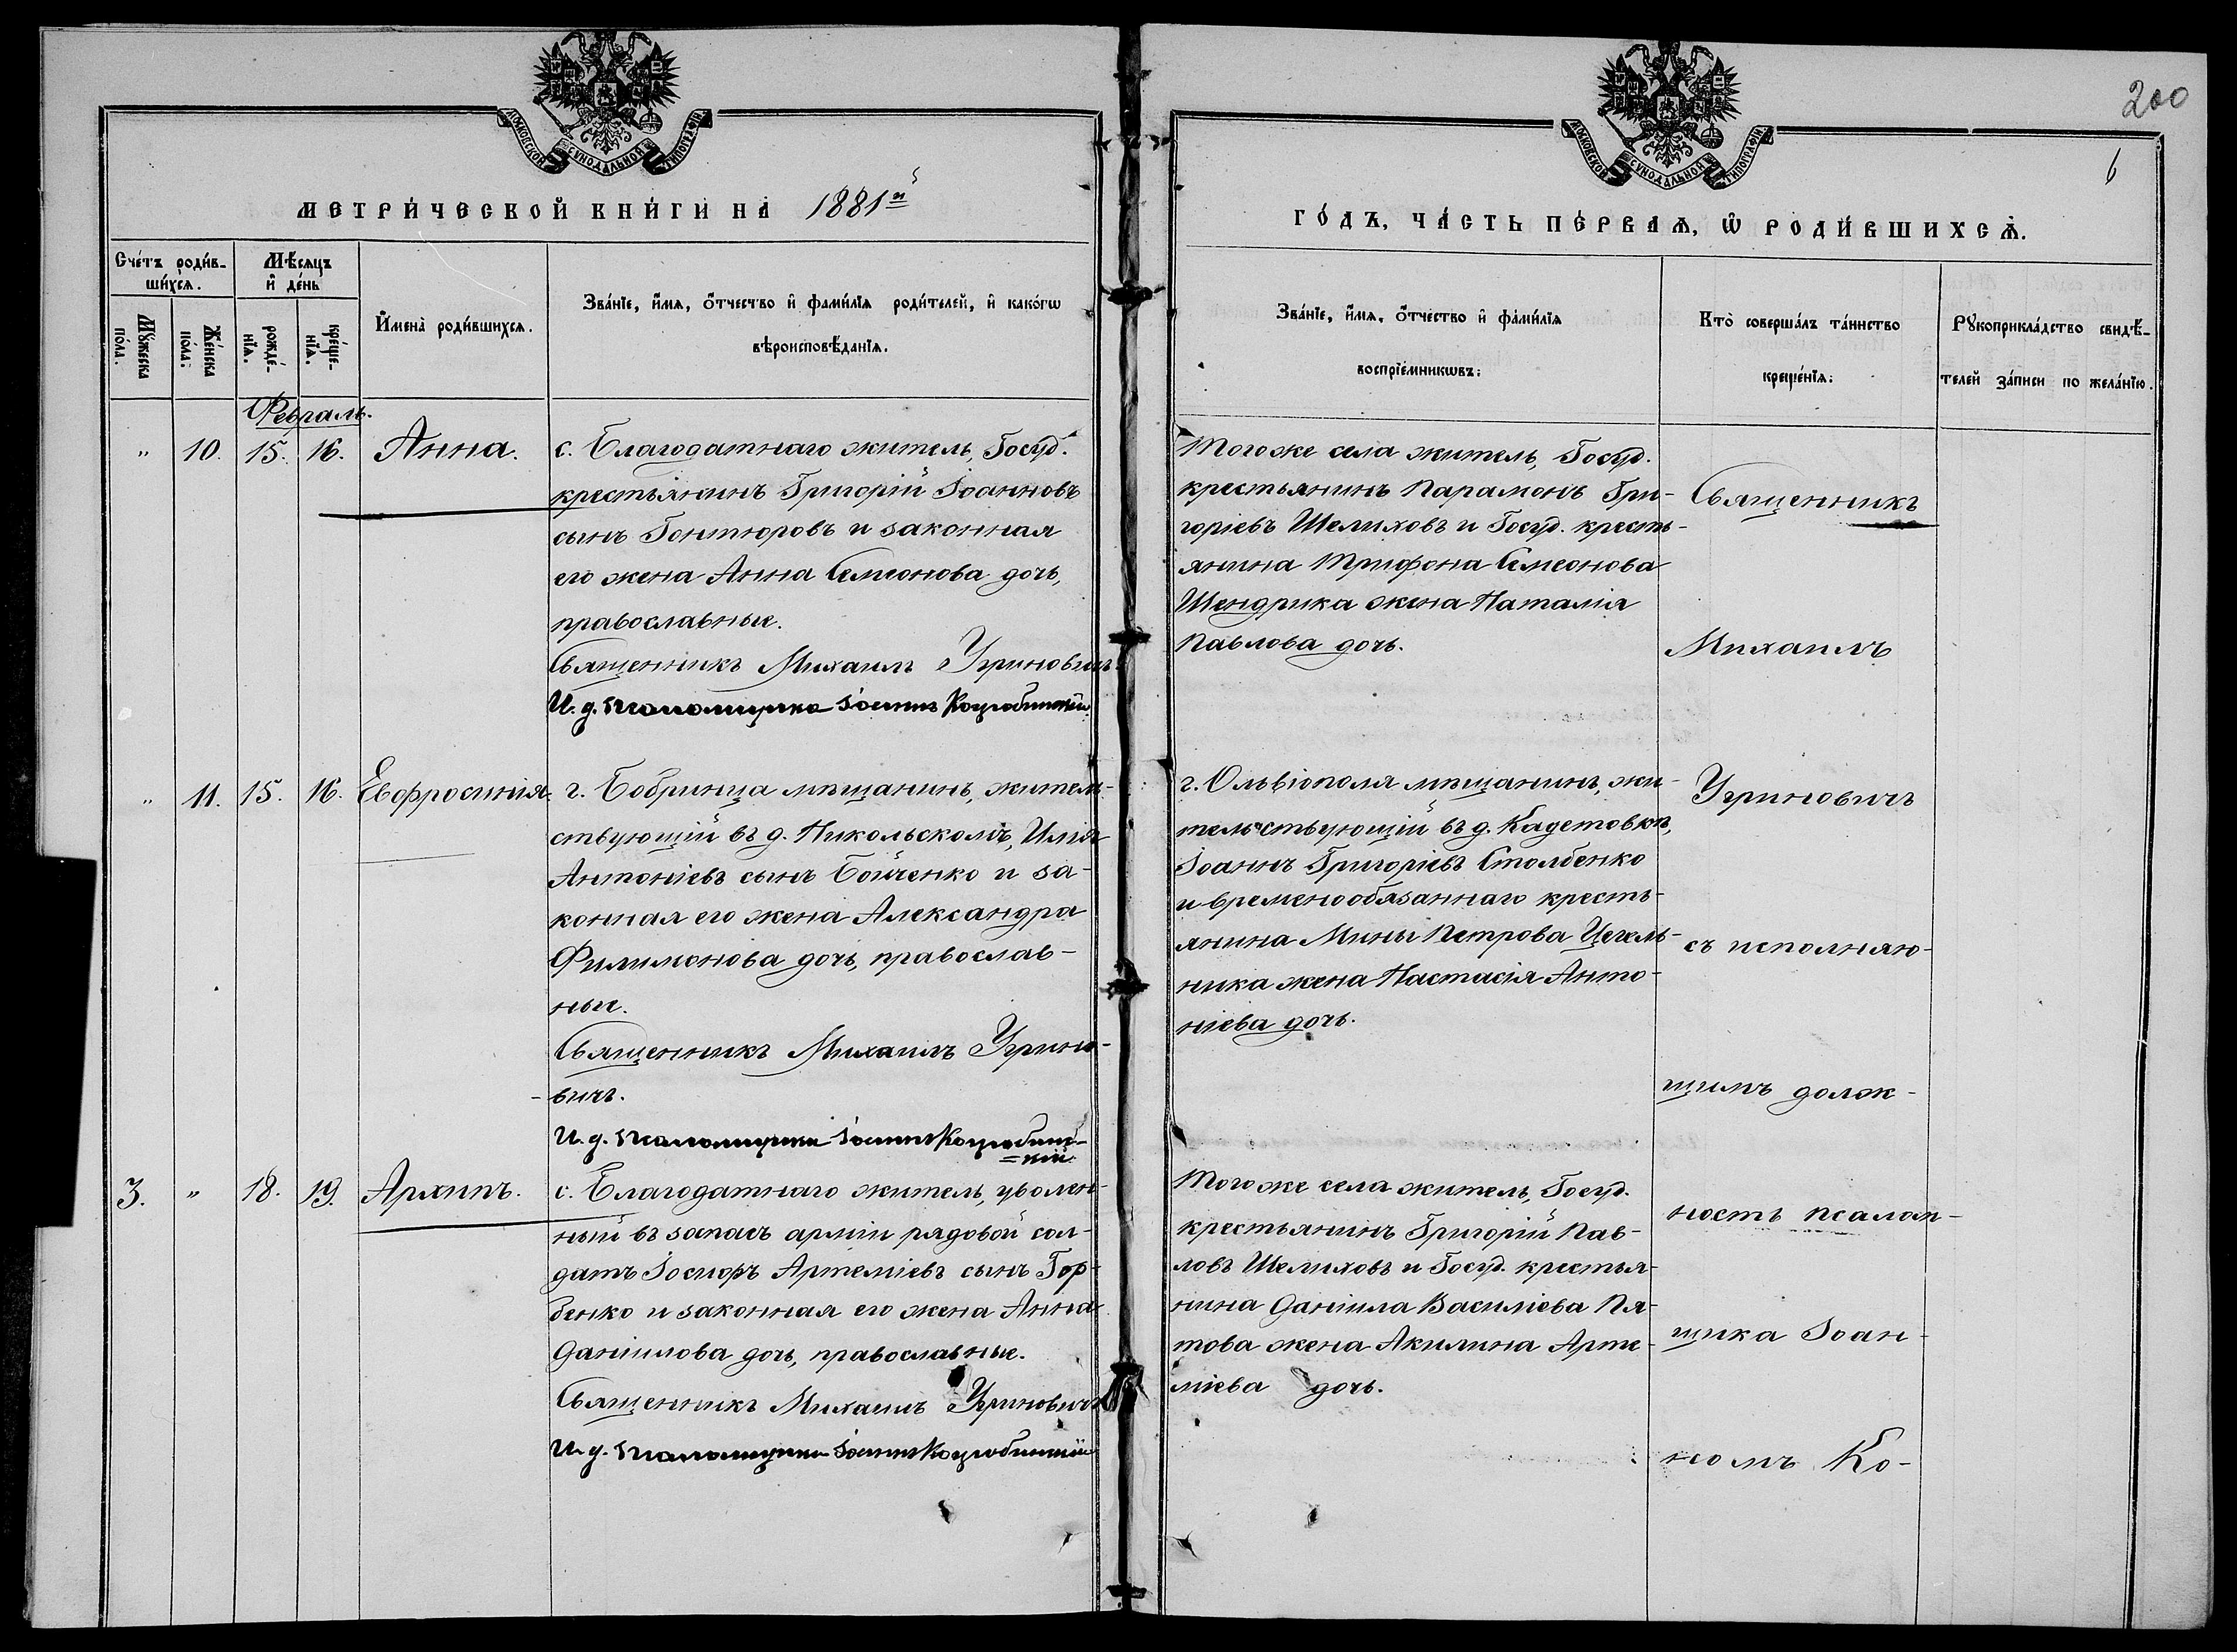 200
6
МЕТРИЧЕСКОЙ КНИГИ НА 1881й
ГОДЪ, ЧАСТЬ ПЕРВАЯ, Ѡ РОДИВШИХСЯ.
Счетъ родив-
шихся.
Мѣсяцъ
и день
Мужеска
пола.
Женска
пола.
рожде-
нія.
креще-
нія.
Имена родившихся.
Званіе, имя, отчество и фамилія родителей, и какогѡ
вѣроисповѣданія.
Званіе, имя, отчество и фамилія
воспріемникѡвъ:
Кто совершалъ таинство
крещенія:
Рукоприкладство свидѣ-
телей записи по желанію.
Февраль.
" 10. 15. 16. Анна.
с. Благодатнаго житель, Госуд.
крестьянинъ Григорій Іоанновъ
сынъ Гонтюровъ и законная
его жена Анна Семеонова дочь,
православные.
Священникъ Михаилъ Угриновичъ
И. д. псаломщика Іоаннъ Коцюбинскій
Тогоже села житель, Госуд.
крестьянинъ Парамонъ Гри-
горіевъ Шелиховъ и Госуд. кресть-
янина Трифона Семеонова
Шендрика жена Наталія
Павлова дочь.
" 11. 15. 16. Евфросинія.
г. Бобринца мѣщанинъ, житель-
ствующій въ д. Никольскомъ, Илія
Антоніевъ сынъ Бойченко и за-
конная его жена Александра
Филимонова дочь, православ-
ные.
Священникъ Михаилъ Угрино-
-вичъ.
И. д. псаломщика Іоаннъ Коцюбинс-
=кій.
г. Ольвіополя мѣщанинъ, жи-
тельствующій въ д. Кадетовкѣ,
Іоаннъ Григоріевъ Столбенко
и временообязаннаго кресть-
янина Мины Петрова Цегель-
ника жена Настасія Анто-
ніева дочь.
3. " 18. 19. Архипъ.
с. Благодатнаго житель, уволен-
ный въ запасъ арміи рядовой сол-
датъ Іосифъ Артеміевъ сынъ Гор-
бенко и законная его жена Анна
Даніилова дочь, православные.
Священникъ Михаилъ Угриновичъ
И. д. псаломщика Іоаннъ Коцюбинскій
Тогоже села житель, Госуд.
крестьянинъ Григорій Пав-
ловъ Шелиховъ и Госуд. крестья-
нина Даніила Василіева Пя-
това жена Акилина Арте-
міева дочь.
Священникъ
Михаилъ
Угриновичъ
съ исполняю-
щимъ долж-
ность псалом-
щика Іоан-
номъ Ко-